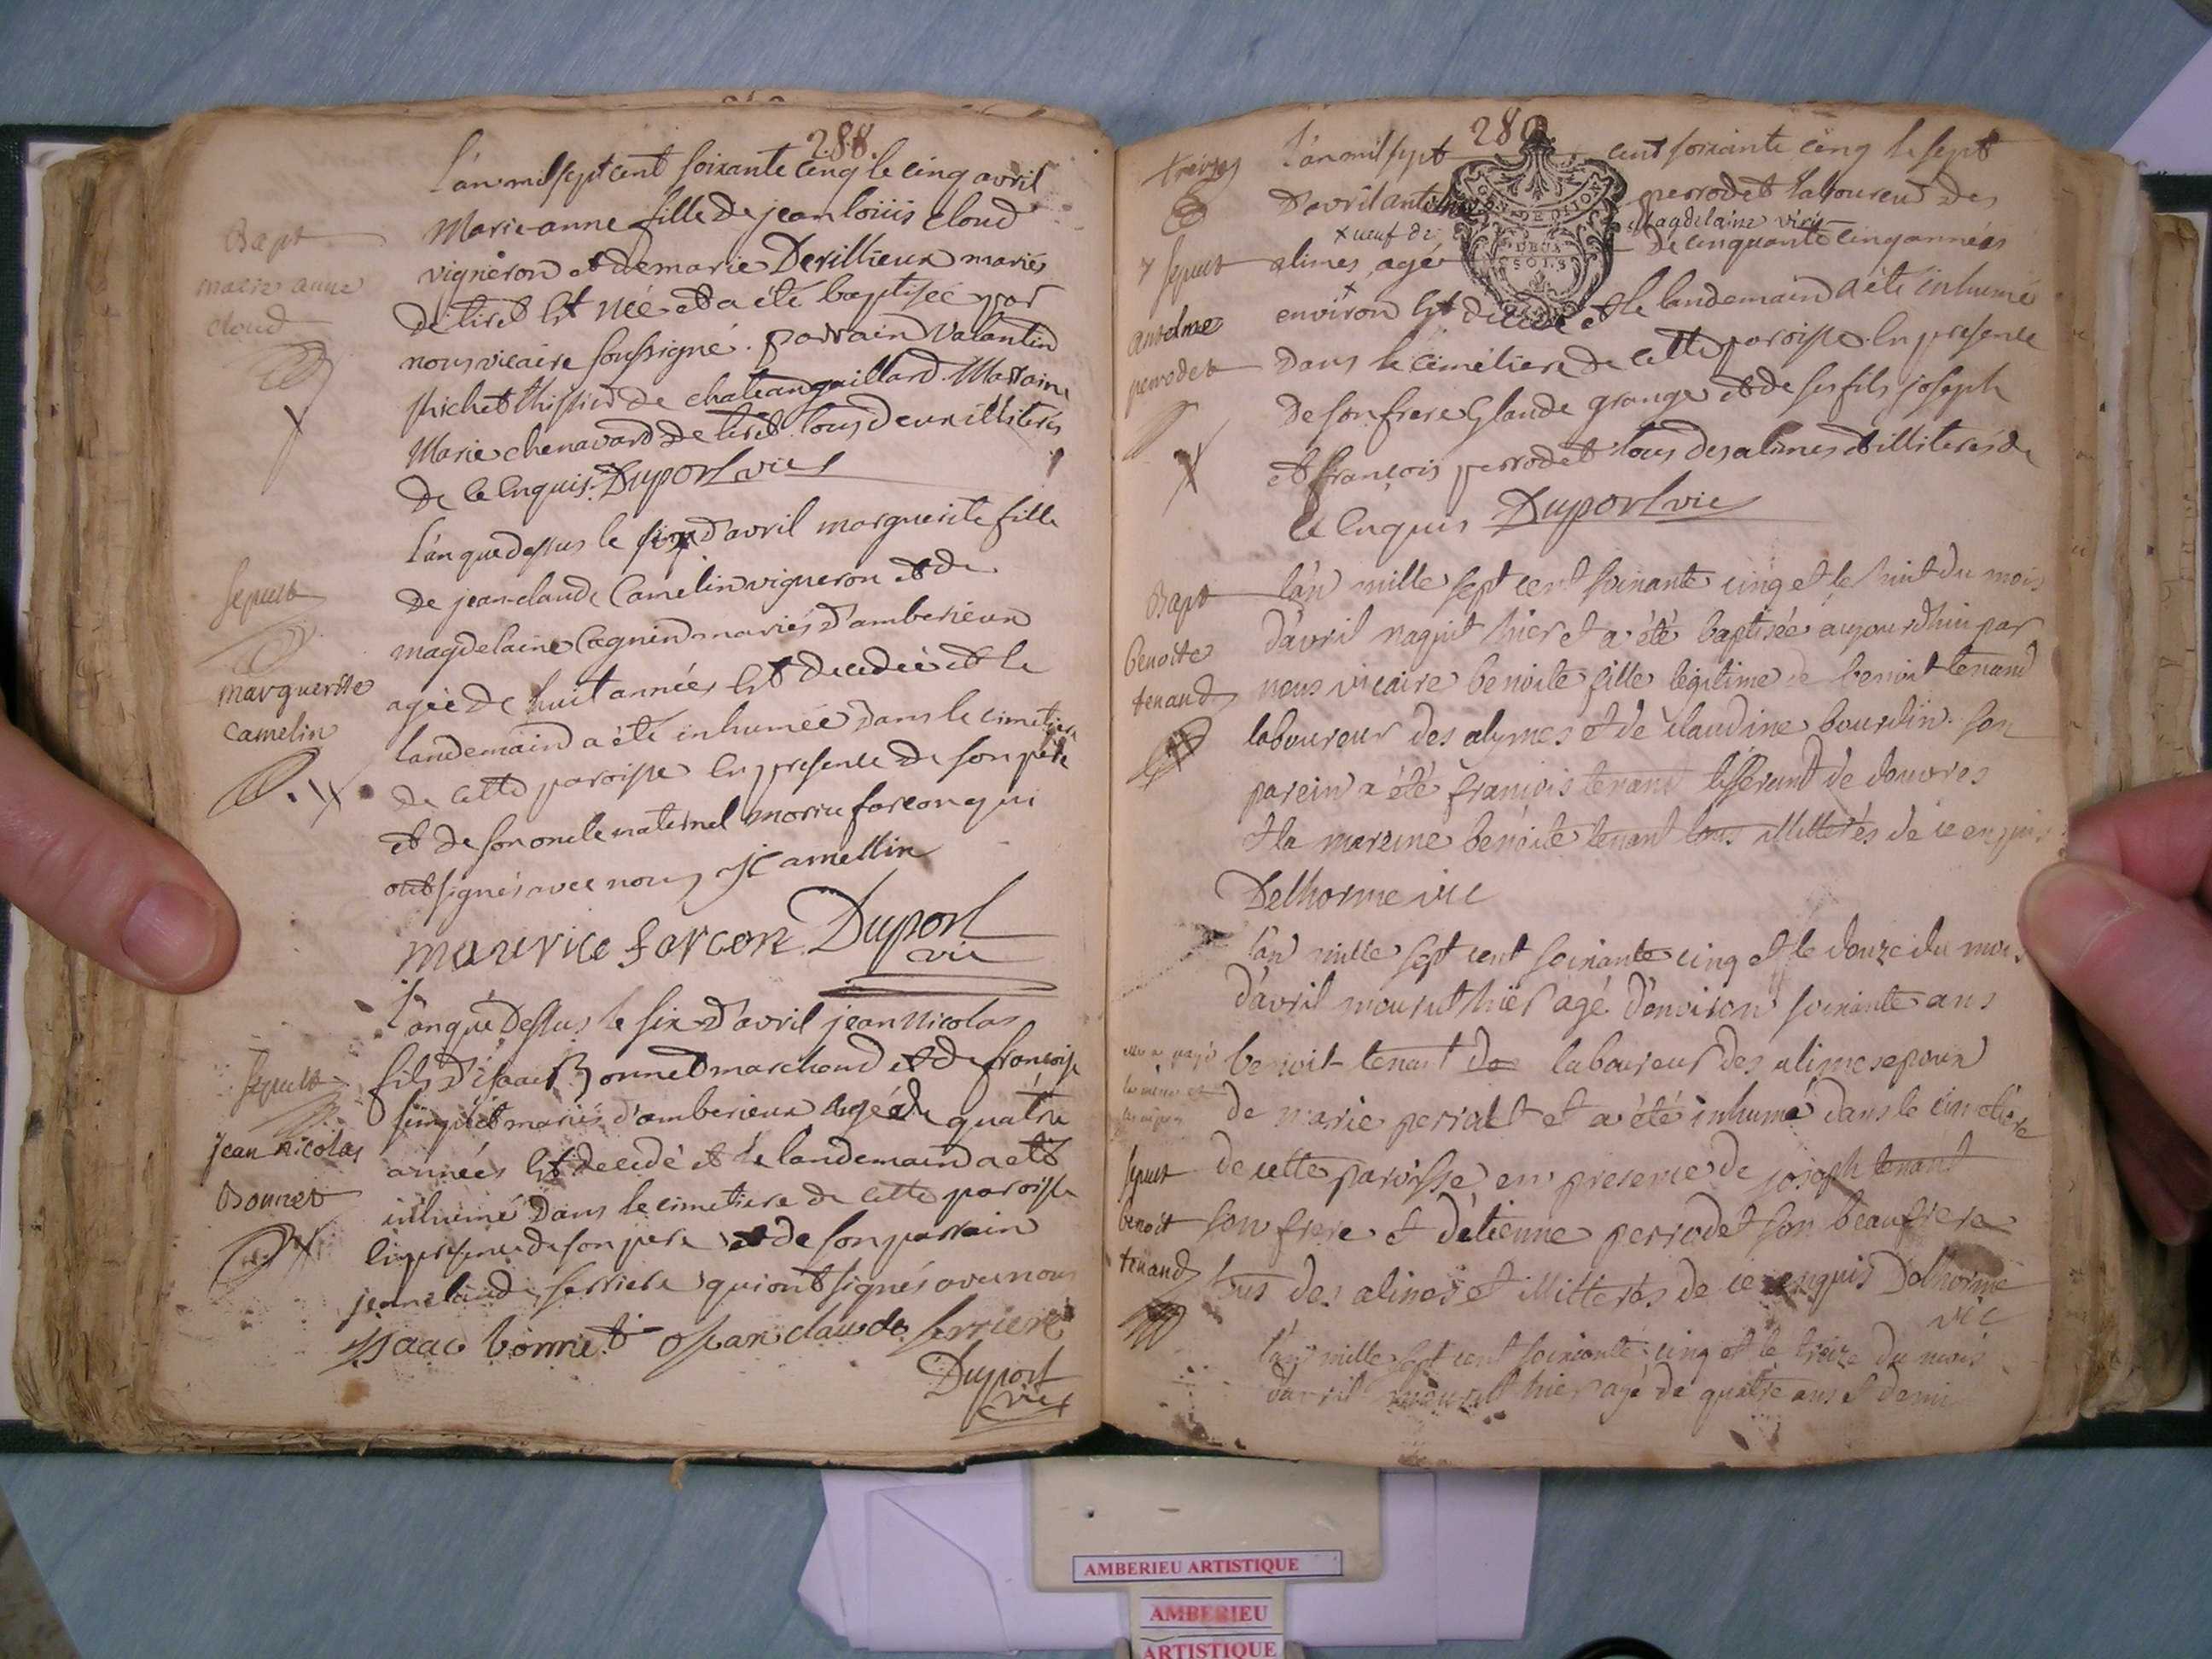 288
Bapt
marie anne
cloud
L'an mil sept cent soixante cinq le cinq avril
Marie-anne fille de jean loüis cloud
vigneron et de marie Derillieux mariés
de tiret est née et a été baptisée par
nous vicaire soussigné. parrain Valantin
michet thissier de chateaugaillard. Marraine
Marie chenavard de tiret tous deux illiterés
de ce enquis. Duport vic
Sepult
marguerite
camelin
L'an que dessus le six d'avril marguerite fille
de jean-claude Camelin vigneron et de
magdelaine Cognin mariés d'amberieux
agée de huit années est decedée et le
landemain a été inhumée dans le cimetiere
de cette paroisse en presence de son pere
et de son oncle maternel morice farcon qui
ont signés avec nous JCamellin
maurice farcon Duport
vic
Sepult
jean nicolas
Bonnet
L'an que dessus le six d'avril jean nicolas
fils d'isaac Bonnet marchand et de françoise
mariés d'amberieux agé de quatre
années est decedé et le landemain a eté
inhumé dans le cimetiere de cette paroisse
en presence de son pere et de son parrain
jean claude serriere qui ont signés avec nous
isaac bonnet jean claude serriere
Duport
vic
GEN. DE DIJON
DEUX
SOLS
Sepult
anselme
perrodet
L'an mil sept cent soixante cinq le sept
d'avril perrodet laboureur des
x veuf de Magdelaine
alimes agé de cinquante cinq années
environ est decedé et le landemain a été inhumé
dans le cimétiere de cette paroisse en presence
de son frere Glaude grange et de ses fils joseph
et françois perrodet tous des alimes et illiterés de
ce enquis Duport vic
Bapt
benoite
tenand
L'an mille sept cent soixante cinq et le huit du mois
d'avril naquit hier et a été baptisée aujourdhui par
nous vicaire benoite fille légitime de benoit tenand
laboureur des alymes et de claudine bourdin. son
parein a été françois tenand tisserand de douvres
et la mareine benoite tenant tous illitterés de ce enquis
Delhorme vic
Sepult
benoit
tenand
L'an mille sept cent soixante cinq et le douze du mois
d'avril mourut hier agé d'environ soixante ans
benoit tenant laboureur des alimes epoux
de marie perralt et a été inhumé dans le cimetière
de cette paroisse en presence de joseph tenant
son frere et d'étienne perrodet son beaufrere
tous des alimes et illitterés de ce enquis Delhorme
vic
L'an mille sept cent soixante cinq et le treize du mois
d'avril mourut hier agé de quatre ans et demi
AMBERIEU ARTISTIQUE
AMBERIEU
ARTISTIQUE